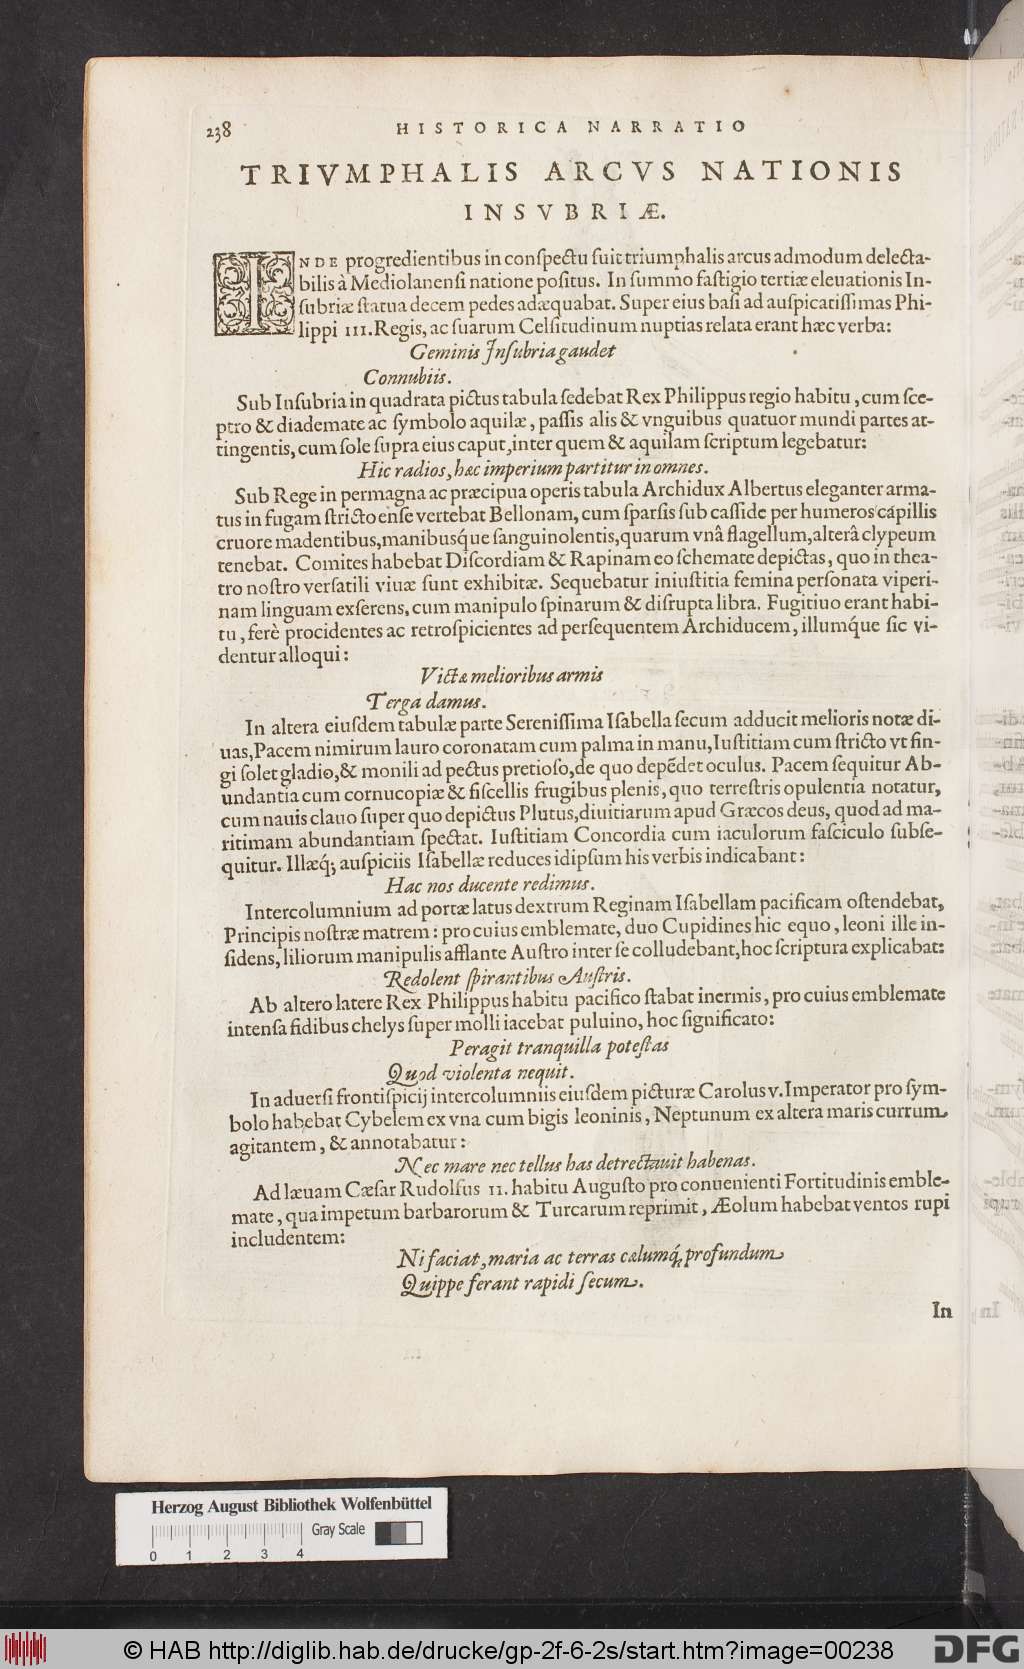 238
HISTORICA NARRATIO
TRIVMPHALIS ARCVS NATIONIS
INSVBRIÆ.
INDE progredientibus in conſpectu fuit triumphalis arcus admodum delecta-
bilis à Mediolanenſi natione poſitus. In ſummo faſtigio tertiæ eleuationis In-
ſubriæ ſtatua decem pedes adæquabat. Super eius baſi ad auſpicatiſſimas Phi-
lippi III. Regis, ac ſuarum Celſitudinum nuptias relata erant hæc verba:
Geminis Inſubria gaudet
Connubiis.
Sub Inſubria in quadrata pictus tabula ſedebat Rex Philippus regio habitu, cum ſce-
ptro & diademate ac ſymbolo aquilæ, paſſis alis & vnguibus quatuor mundi partes at-
tingentis, cum ſole ſupra eius caput, inter quem & aquilam ſcriptum legebatur:
Hic radios, hæc imperium partitur in omnes.
Sub Rege in permagna ac præcipua operis tabula Archidux Albertus eleganter arma-
tus in fugam ſtricto enſe vertebat Bellonam, cum ſparſis ſub caſſide per humeros capillis
cruore madentibus, manibusq́ue ſanguinolentis, quarum vnâ flagellum, alterâ clypeum
tenebat. Comites habebat Diſcordiam & Rapinam eo ſchemate depictas, quo in thea-
tro noſtro verſatili viuæ ſunt exhibitæ. Sequebatur iniuſtitia femina perſonata viperi-
nam linguam exſerens, cum manipulo ſpinarum & diſrupta libra. Fugitiuo erant habi-
tu, ferè procidentes ac retroſpicientes ad perſequentem Archiducem, illumq́ue ſic vi-
dentur alloqui:
Victæ melioribus armis
Terga damus.
In altera eiuſdem tabulæ parte Sereniſſima Iſabella ſecum adducit melioris notæ di-
uas, Pacem nimirum lauro coronatam cum palma in manu, Iuſtitiam cum ſtricto vt fin-
gi ſolet gladio, & monili ad pectus pretioſo, de quo depẽdet oculus. Pacem ſequitur Ab-
undantia cum cornucopiæ & fiſcellis frugibus plenis, quo terreſtris opulentia notatur,
cum nauis clauo ſuper quo depictus Plutus, diuitiarum apud Græcos deus, quod ad ma-
ritimam abundantiam ſpectat. Iuſtitiam Concordia cum iaculorum faſciculo ſubſe-
quitur. Illæq́; auſpiciis Iſabellæ reduces idipſum his verbis indicabant:
Hac nos ducente redimus.
Intercolumnium ad portæ latus dextrum Reginam Iſabellam pacificam oſtendebat,
Principis noſtræ matrem: pro cuius emblemate, duo Cupidines hic equo, leoni ille in-
ſidens, liliorum manipulis afflante Auſtro inter ſe colludebant, hoc ſcriptura explicabat:
Redolent ſpirantibus Auſtris.
Ab altero latere Rex Philippus habitu pacifico ſtabat inermis, pro cuius emblemate
intenſa fidibus chelys ſuper molli iacebat puluino, hoc ſignificato:
Peragit tranquilla poteſtas
Quod violenta nequit.
In aduerſi frontiſpicij intercolumniis eiuſdem picturæ Carolus V. Imperator pro ſym-
bolo habebat Cybelem ex vna cum bigis leoninis, Neptunum ex altera maris currum
agitantem, & annotabatur:
Nec mare nec tellus has detrectauit habenas.
Ad læuam Cæſar Rudolfus II. habitu Auguſto pro conuenienti Fortitudinis emble-
mate, qua impetum barbarorum & Turcarum reprimit, Æolum habebat ventos rupi
includentem:
Ni faciat, maria ac terras cælumq́; profundum
Quippe ferant rapidi ſecum.
In
Herzog August Bibliothek Wolfenbüttel
Gray Scale
0 1 2 3 4
© HAB http://diglib.hab.de/drucke/gp-2f-6-2s/start.htm?image=00238
DFG